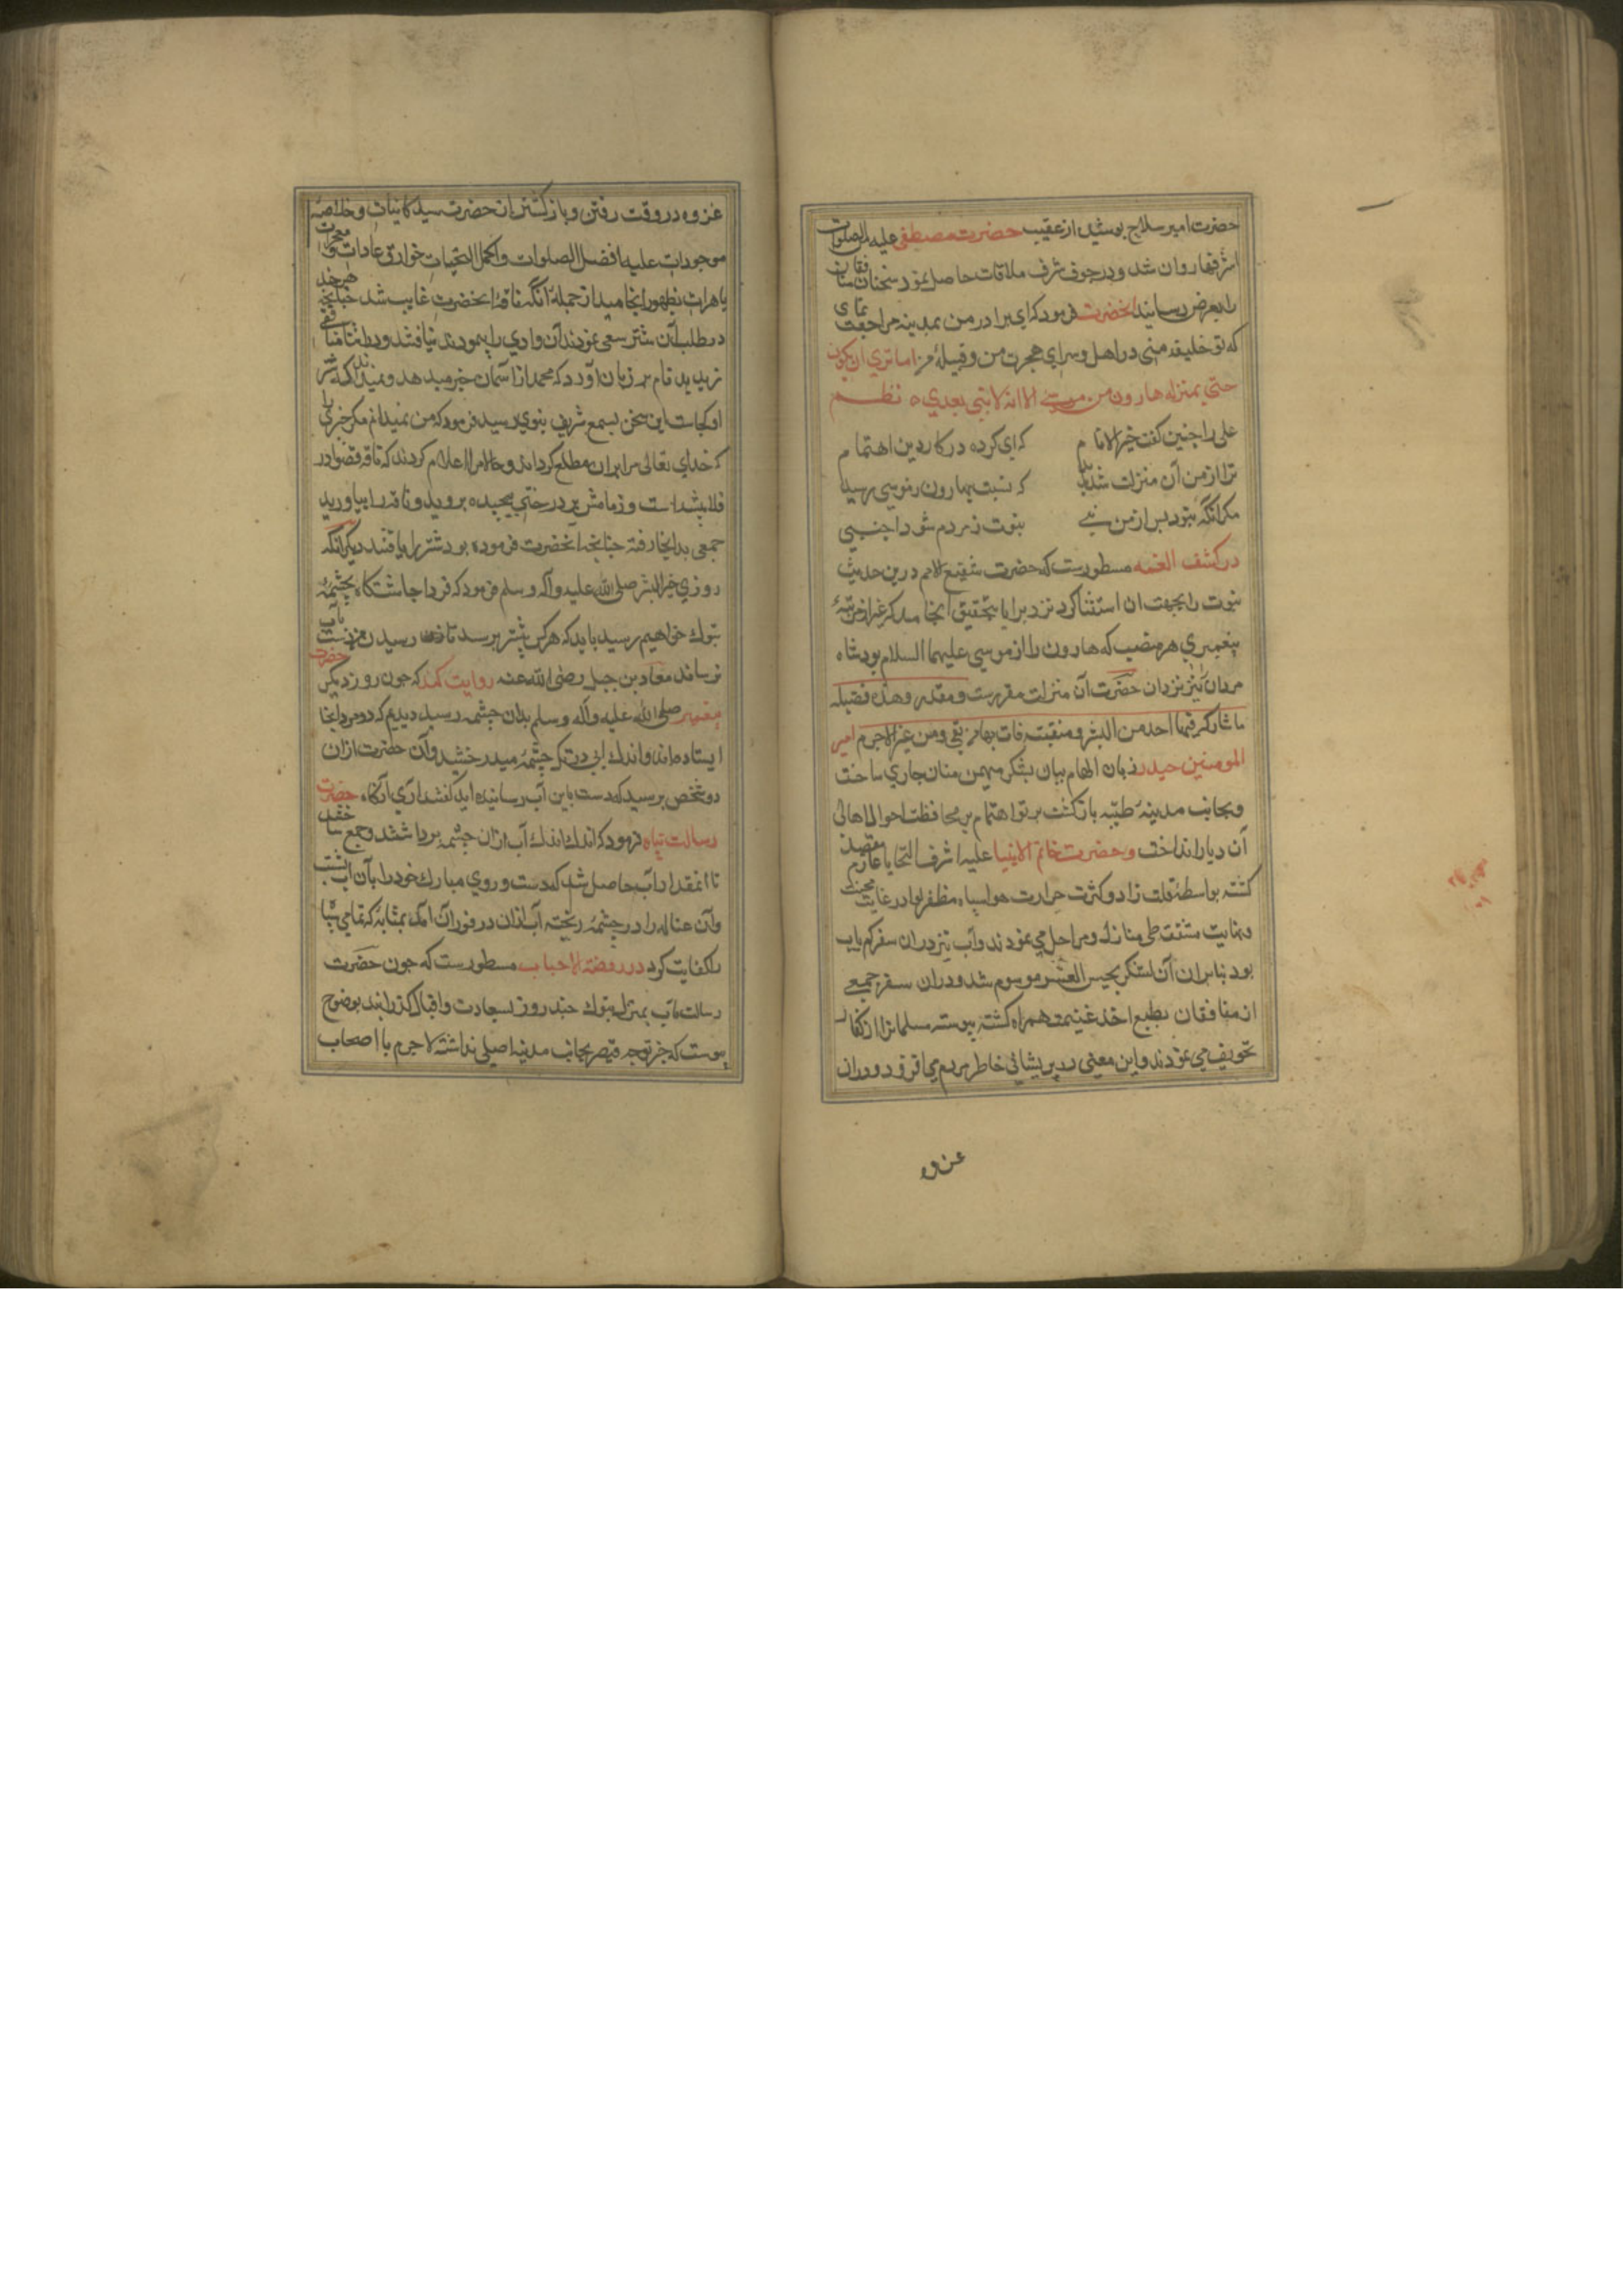 حضرت امیر سلاح پوشیده از عقیب حضرت مصطفی علیه من الصلوات
اشرفها روان شد و در جوف شرف ملاقات حاصل نمود سخنان منافقان
را بعرض رسانید آنحضرت فرمود که ای برادر من بمدینه مراجعت نمای
که تو خلیفه منی در اهل و سرای هجرت من و قبیلهٔ من اما ترضی ان یکون
حتی بمنزله هارون من موسی الا انه لا نبی بعدی ه نظم
علی را چنین گفت خیر الانام که ای کرده در کار دین اهتمام
ترا از من آن منزلت شد پدید که نسبت بهارون ز موسی رسید
مکر آنکه نبود پس از من نبی نبوت ز مردم شود اجنبی
در کشف الغمه مسطورست که حضرت شفیع الامم درین حدیث
نبوت را بجهت آن استثنا کرد
پیغمبری هر منصب که هارون را از موسی علیهما السلام بود شاه
مردان نیز نزدان حضرت آن منزلت مقررست و مقدر وهذه فضیله
ما شارکه فیها احد من البشر و منقبته فات بها من بقی ومن غبر لاجرم امیر
المومنین حیدر زبان الهام بیان بشکر مهیمن منان جاری ساخت
و بجانب مدینه طیبه بازگشت پرتو اهتمام بر محافظت احوال اهالی
آن دیار انداخت و حضرت خاتم الانبیا علیه اشرف التحایا عازم مقصد
کشته بواسطه قلت زاد و کثرت حرارت هوا سپاه مظفر لوا در غایت محنت
و نهایت مشقت طی منازل و مراحل می نمودند و آب نیز دران سفر کم یاب
بود بنابران آن لشکر بجیش العسر موسوم شد و دران سفر جمعی
از منافقان بطمع اخذ غنیمت همراه کشته پیوسته مسلمانرا از کفار
تخویف می نمودند و این معنی در پریشانی خاطر مردم می افزود و دران
غزوه
غزوه در وقت رفتن و بازگشتن از حضرت سید کاینات و خلاصه
موجودات علیه افضل الصلوات و اکمل التحیات خوارق عادات و معجزات
باهرات بظهور انجامید از جمله آنکه ناقه آنحضرت غایب شد چنانچه هر چند
در طلب آن شتر سعی نمودند آن وادی را پیمودند نیافتند و در اثنا منافقی
زید نام بر زبان آورد که محمد از آسمان خبر میدهد و نمیداند که شتر
او کجاست این سخن بسمع شریف نبوی رسید فرمود که من نمیدانم مکر چیزی را
که خدای تعالی مرا بران مطلع کرداند و حالا مرا اعلام کردند که ناقه قضوا در
فلان پشته است و زمامش بر درختی پیچیده بروید و ناقه را بیاورید
جمعی بدانجا رفته چنانچه آنحضرت فرموده بود شتر را یافتند دیکر آنکه
روزی خیر البشر صلی الله علیه و آله و سلم فرمود که فردا چاشتگاه بچشمهٔ
تبوک خواهیم رسید باید که هر کس پیشتر برسد تا رسیدن من دست بآب
نرساند معاذ بن جبل رضی الله عنه روایت کند که چون روز دیکر حضرت
پیغمبر صلی الله علیه و آله و سلم بدان چشمه رسید دیدیم که دو مرد آنجا
ایستاده اند و اندک آبی در تک چشمه میدرخشید و آن حضرت ازان
دو شخص پرسید که دست باین آب رسانیده اید گفتند آری آنگاه حضرت
رسالت پناه فرمود که اندک اندک آب ازان چشمه برداشتند و جمع ساختند
تا آنمقدار آب حاصل شد که دست و روی مبارک خود را بآن آب بشست
و آن غساله را در چشمه ریخته آب ازان در فوران آمد بمثابه که تمامی سپاه
را کفایت کرد در روضة الاحباب مسطورست که چون حضرت
رسالت مآب بمنزل تبوک چند روز بسعادت و اقبال گذرانید بوضوح
پیوست که خبر توجه قیصر بجانب مدینه اصلی نداشته لاجرم با اصحاب